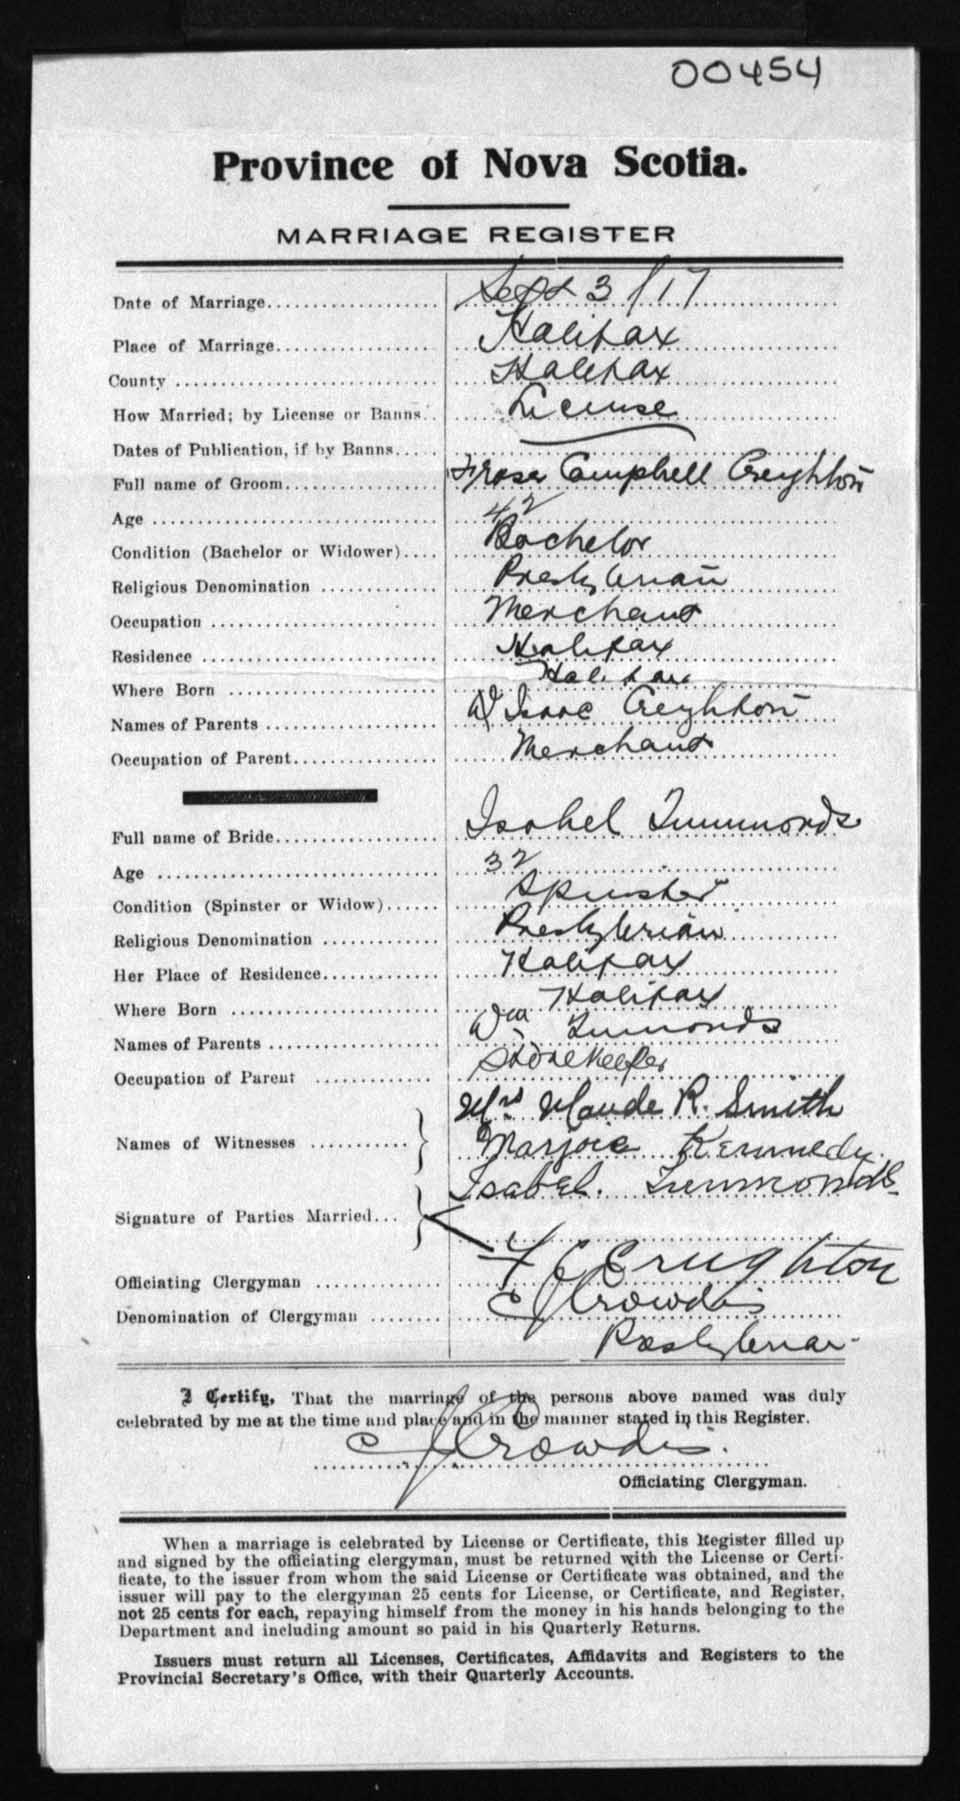 00454
Province of Nova Scotia.
MARRIAGE REGISTER
Date of Marriage Sept 3/17
Place of Marriage Halifax
County Halifax
How Married; by License or Banns License
Dates of Publication, if by Banns
Full name of Groom Fraser Campbell Creighton
Age 42
Condition (Bachelor or Widower) Bachelor
Religious Denomination Presbyterian
Occupation Merchant
Residence Halifax
Where Born Halifax
Names of Parents Isaac Creighton
Occupation of Parent Merchant
Full name of Bride Isabel Timmonds
Age 32
Condition (Spinster or Widow) Spinster
Religious Denomination Presbyterian
Her Place of Residence Halifax
Where Born Halifax
Names of Parents Wm Timmonds
Occupation of Parent Storekeeper
Names of Witnesses Mrs Maude R. Smith
Marjorie Kennedy
Isabel. Timmonds
Signature of Parties Married
F C Creighton
Officiating Clergyman C J Crowdis
Denomination of Clergyman Presbyterian
I Certify, That the marriage of the persons above named was duly
celebrated by me at the time and place and in the manner stated in this Register.
C J Crowdis.
Officiating Clergyman.
When a marriage is celebrated by License or Certificate, this Register filled up
and signed by the officiating clergyman, must be returned with the License or Certi-
ficate, to the issuer from whom the said License or Certificate was obtained, and the
issuer will pay to the clergyman 25 cents for License, or Certificate, and Register,
not 25 cents for each, repaying himself from the money in his hands belonging to the
Department and including amount so paid in his Quarterly Returns.
Issuers must return all Licenses, Certificates, Affidavits and Registers to the
Provincial Secretary's Office, with their Quarterly Accounts.